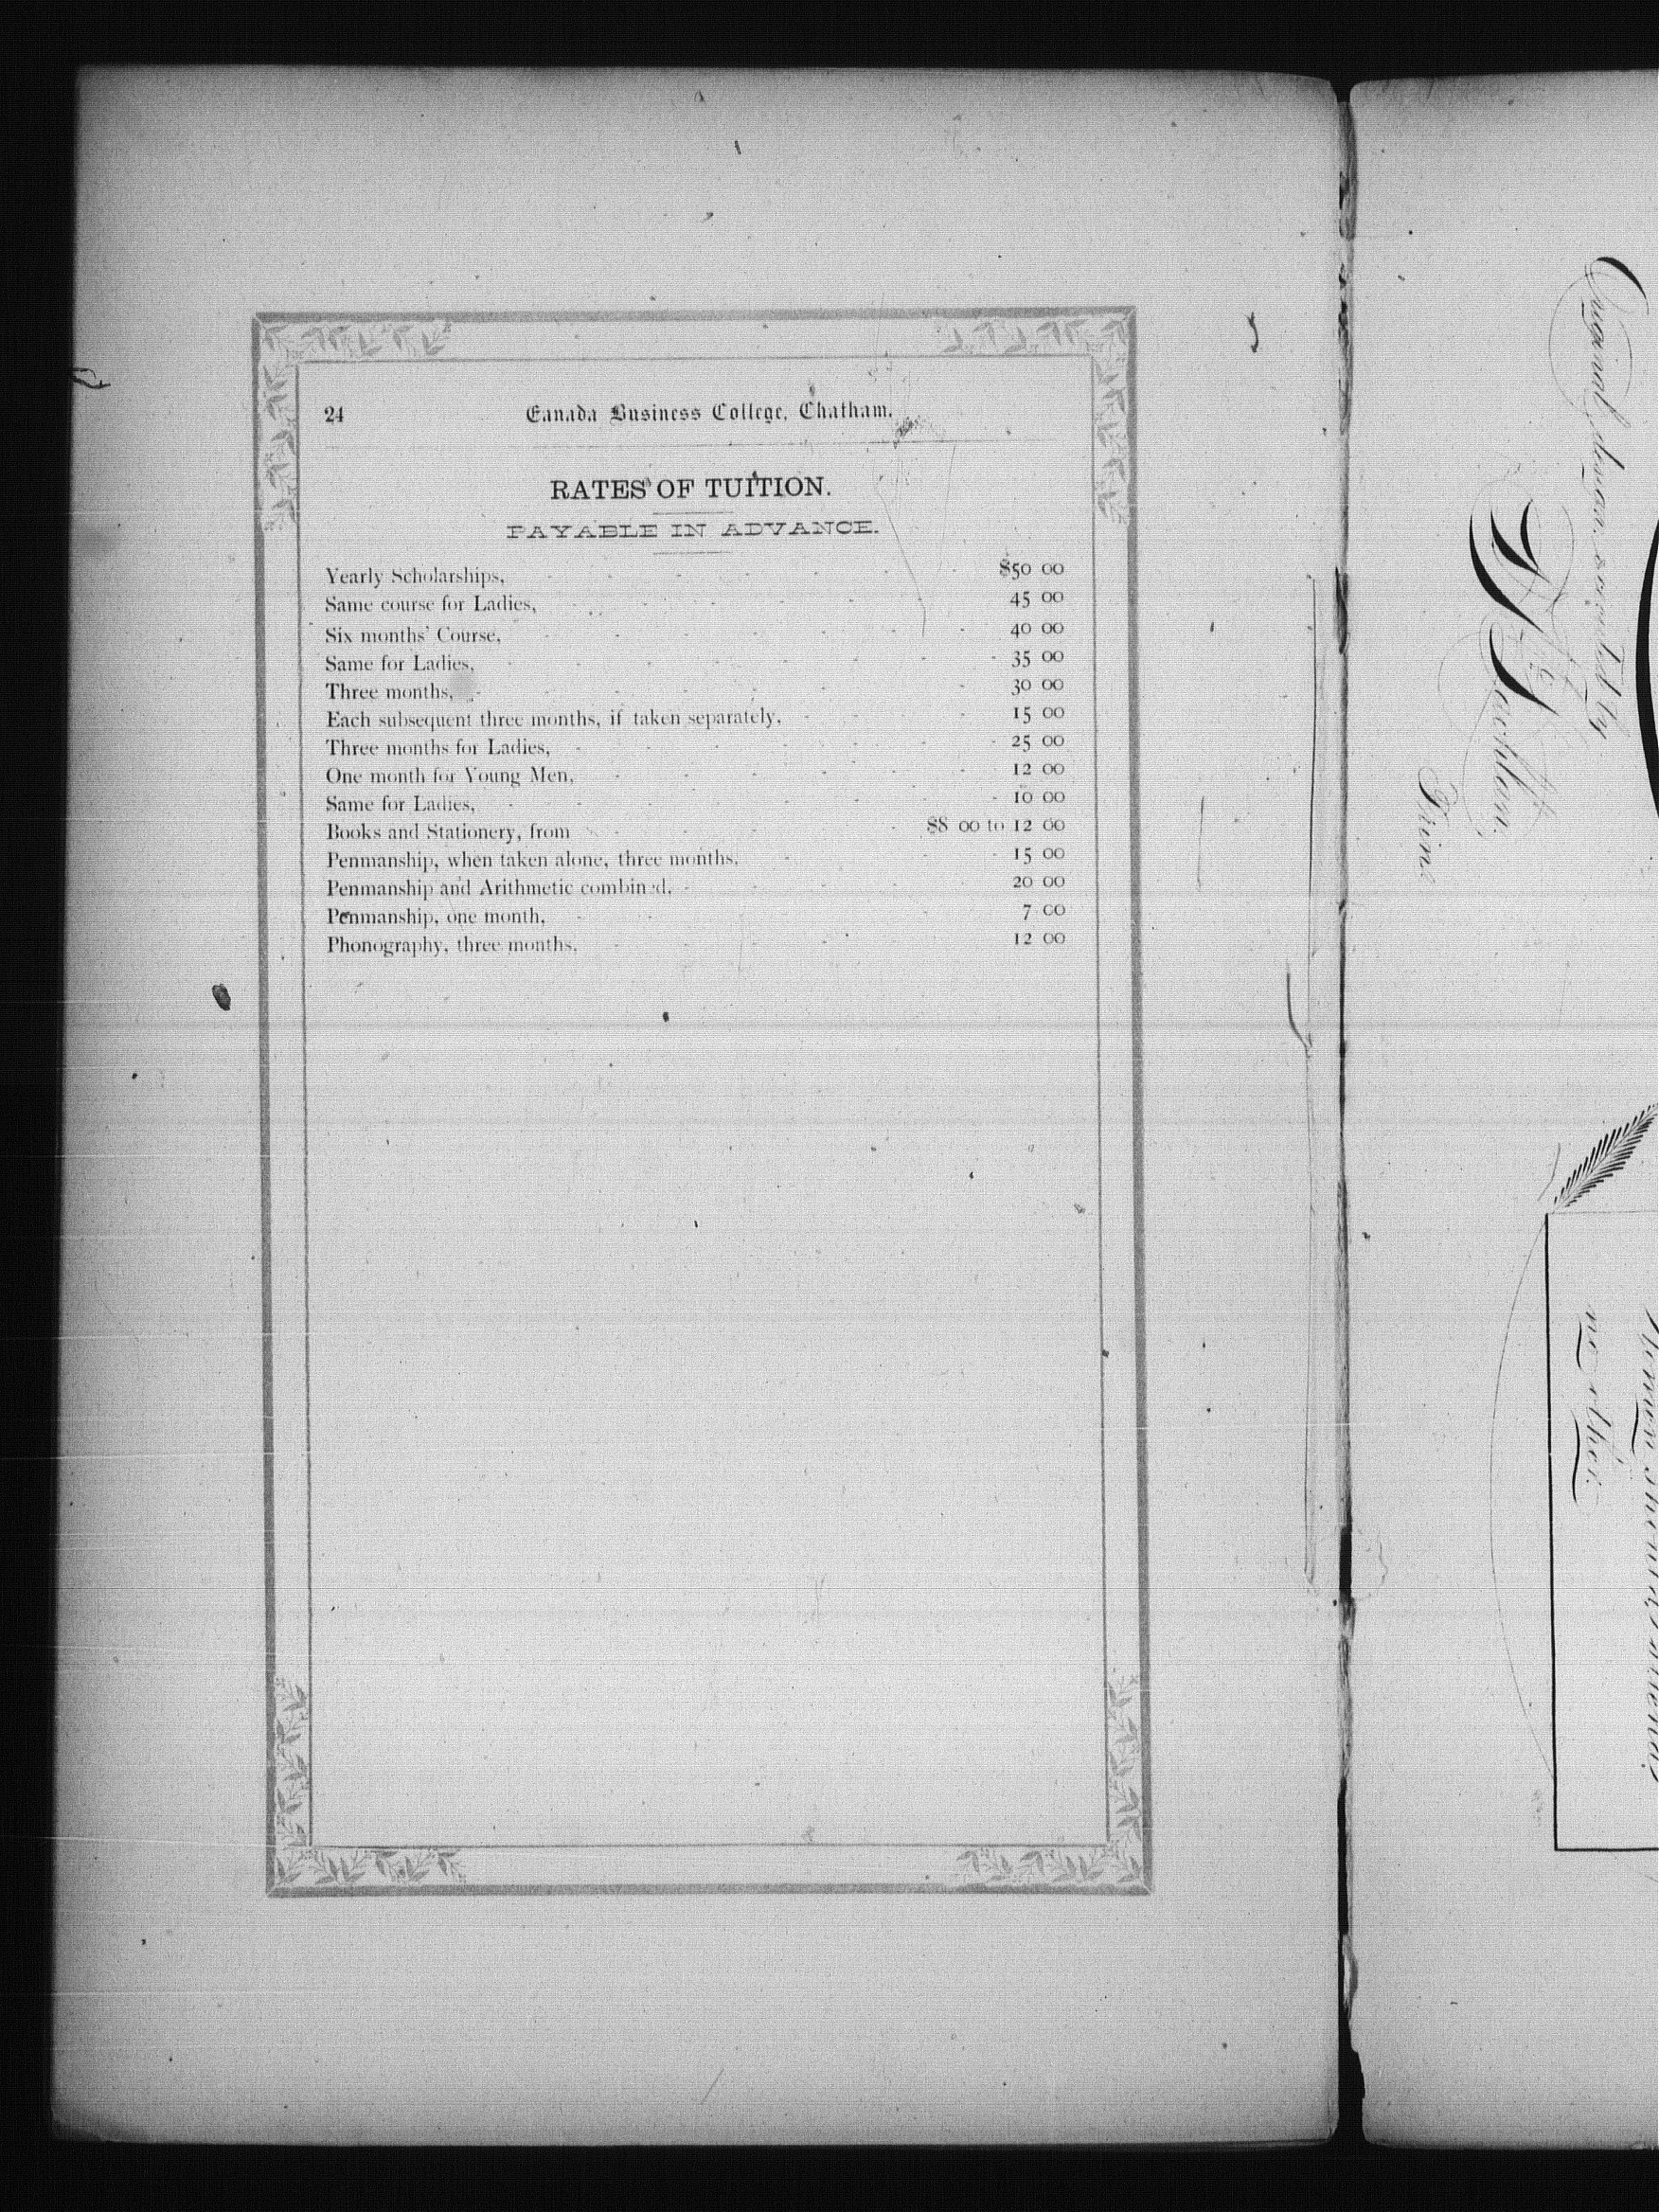 24 Canada Business College, Chatham.
RATES OF TUITION.
PAYABLE IN ADVANCE.
Yearly Scholarships, - - - - - $50 00
Same course for Ladies, - - - - - 45 00
Six months' Course, - - - - - 40 00
Same for Ladies, - - - - - 35 00
Three months, - - - - - 30 00
Each subsequent three months, if taken separately, - - - 15 00
Three months for Ladies, - - - - - 25 00
One month for Young Men, - - - - - 12 00
Same for Ladies, - - - - - 10 00
Books and Stationery, from - - - - $8 00 to 12 00
Penmanship, when taken alone, three months, - - - 15 00
Penmanship and Arithmetic combined, - - - 20 00
Penmanship, one month, - - - 7 00
Phonography, three months, - - - - 12 00
Original design executed by